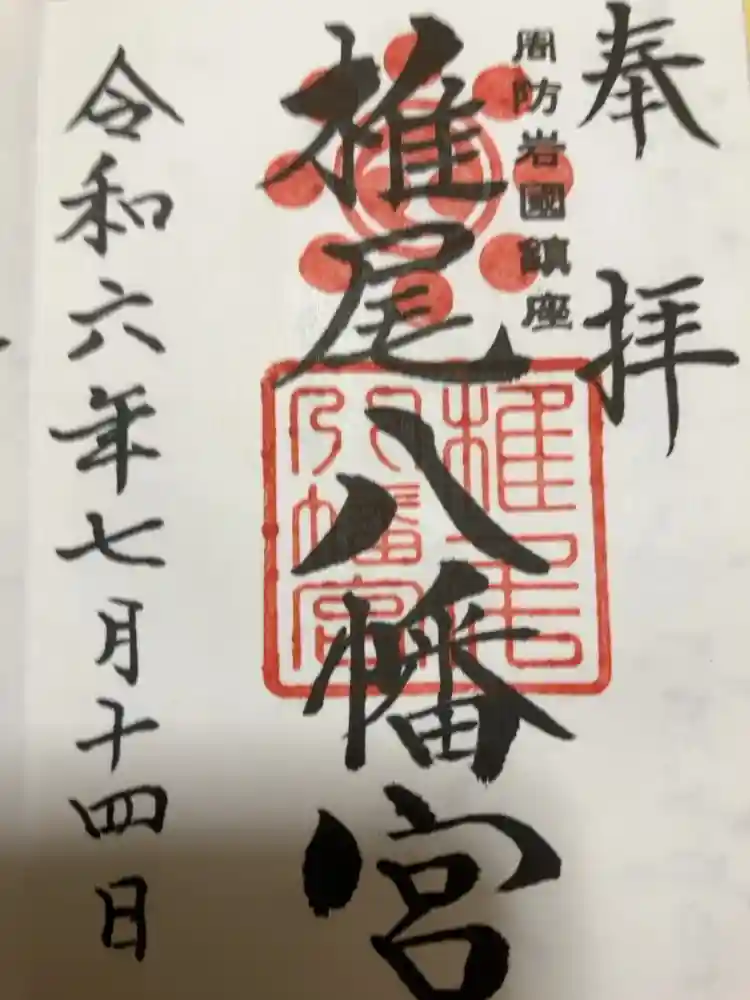 奉拝
周防岩國鎮座
椎尾八幡宮
椎尾
八幡宮
令和六年七月十四日